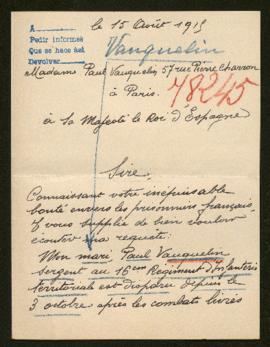 A
Pedir informes
Que se hace así
Devolver
le 15 Août 1915
Vauquelin
Madame Paul Vauquelin 57 rue Pierre Charron
à Paris.
78245
à Sa Majesté le Roi d'Espagne
Sire,
Connaissant votre inépuisable
bonté envers les prisonniers français
je vous supplie de bien vouloir
écouter ma requête:
Mon mari Paul Vauquelin
sergent au 16eme Régiment d'Infanterie
territoriale est disparu depuis le
3 octobre après les combats livrés